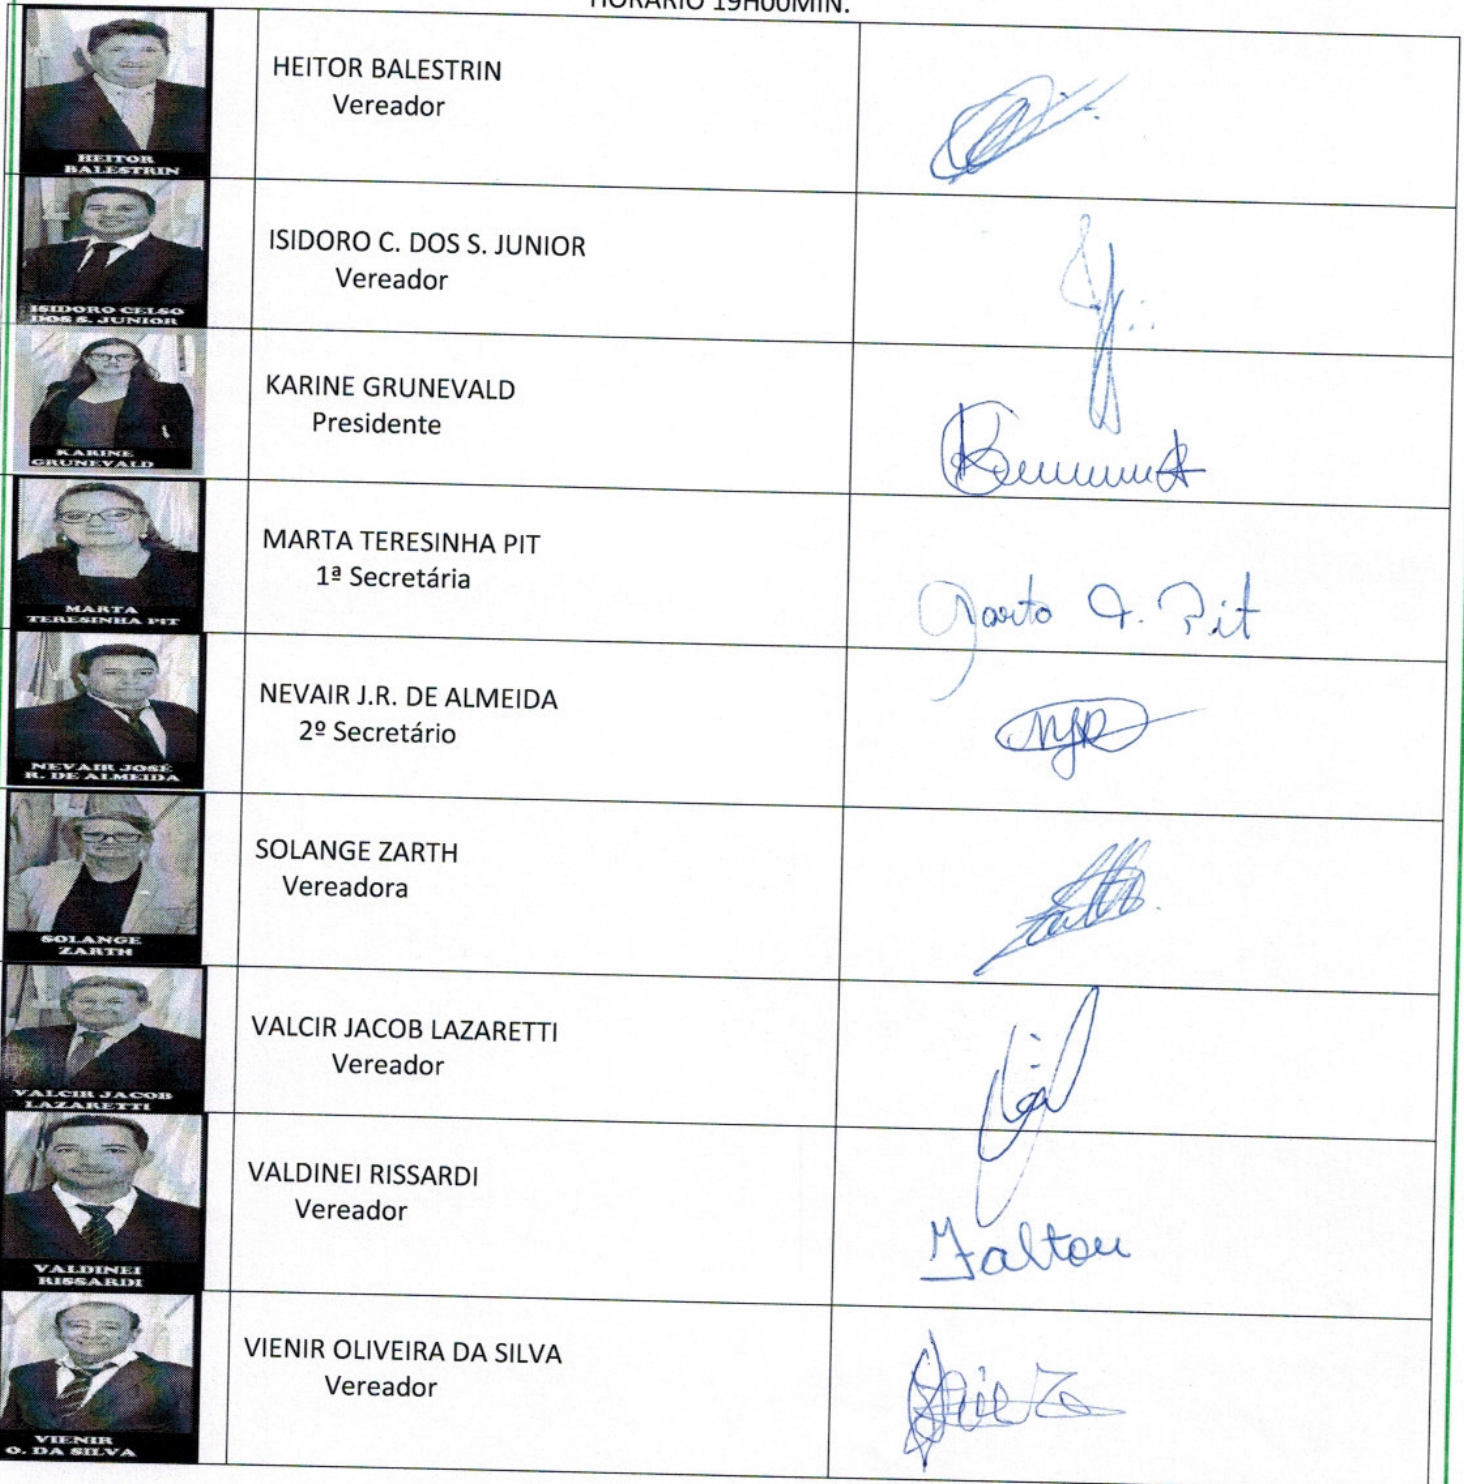 HORÁRIO 19H00MIN.
HEITOR
BALESTRIN
HEITOR BALESTRIN
Vereador
ISIDORO CELSO
DOS S. JUNIOR
ISIDORO C. DOS S. JUNIOR
Vereador
KARINE
GRUNEVALD
KARINE GRUNEVALD
Presidente
MARTA
TERESINHA PIT
MARTA TERESINHA PIT
1ª Secretária
Marta T. Pit
NEVAIR JOSÉ
R. DE ALMEIDA
NEVAIR J.R. DE ALMEIDA
2º Secretário
NJR
SOLANGE
ZARTH
SOLANGE ZARTH
Vereadora
VALCIR JACOB
LAZARETTI
VALCIR JACOB LAZARETTI
Vereador
VALDINEI
RISSARDI
VALDINEI RISSARDI
Vereador
Faltou
VIENIR
O. DA SILVA
VIENIR OLIVEIRA DA SILVA
Vereador